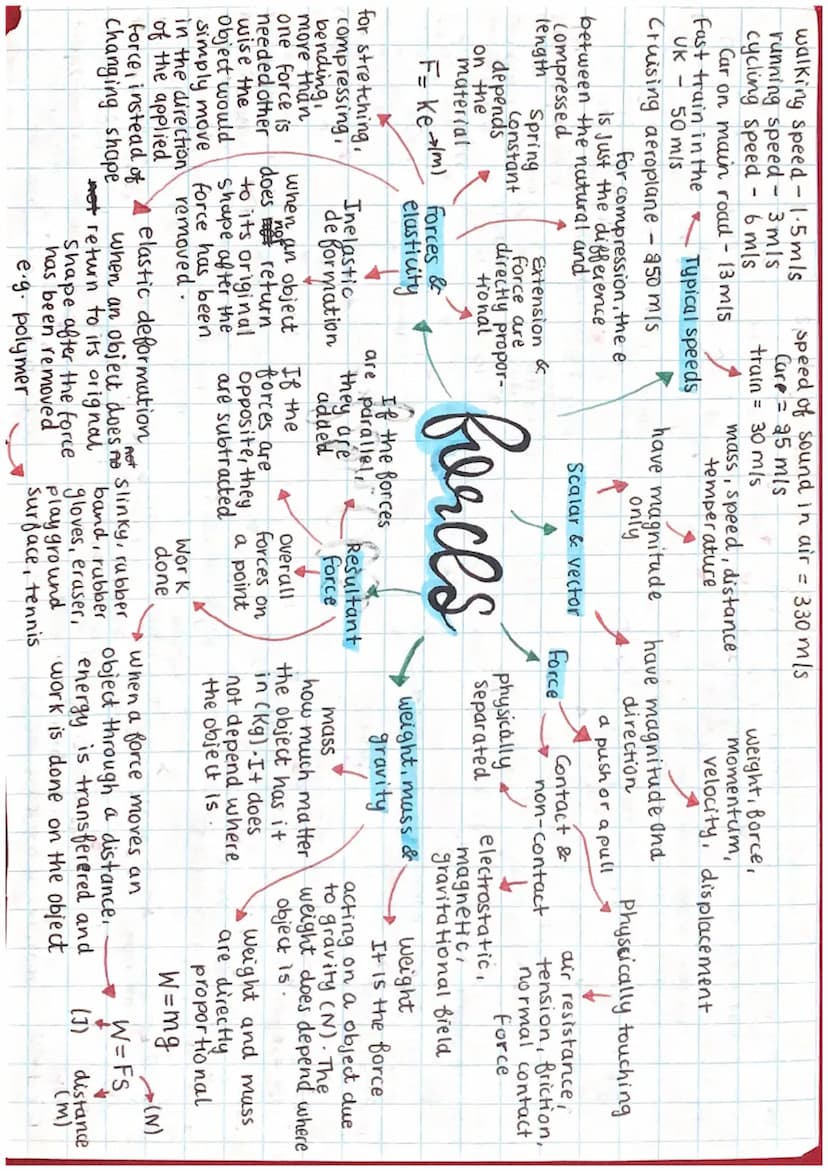 walking speed - 1.5 m/s
running speed - 3 m/s
cycling speed - 6 m/s
Car on main road - 13 m/s
Fast train in the
UK - 50 m/s
Cruising aeroplane - 250 m/s
Typical speeds
speed of sound in air = 330 m/s
Care = 25 m/s
train = 30 m/s
for compression, the e
is just the difference
between the natural and
compressed
length
Spring
constant
depends
on the
material
F = Ke → (m)
Extension &
force are
directly propor-
tional
Forces &
elasticity
for stretching,
compressing,
bending,
more than
one force is
needed other
wise the
object would
simply move
in the direction
of the applied
force, instead of
changing shape
Inelastic
deformation
when an object
does not return
to its original
shape after the
force has been
removed.
elastic deformation
when an object does not
return to its orignal
shape after the force
has been removed
e.g. polymer
slinky, rubber
band, rubber
gloves, eraser,
playground
surface, tennis
forces
Scalar & vector
have magnitude
only
mass, speed, distance
temperature
have magnitude and
direction
weight, force,
momentum,
velocity, displacement
Force
a push or a pull
Contact &
non-contact
physically
separated
Physically touching
air resistance,
tension, friction,
normal contact
force
electrostatic,
magnetic,
gravitational field
Resultant
force
If the forces
are parallel,
they are
added
If the
forces are
opposite, they
are subtracted
overall
forces on
a point
Work
done
when a force moves an
object through a distance,
energy is transferred and
work is done on the object
W = FS
(N)
(J)
distance
(M)
weight, mass &
gravity
mass
how much matter
the object has it
in (Kg). It does
not depend where
the object is.
Weight
It is the force
acting on a object due
to gravity (N). The
weight does depend where
object is.
Weight and mass
are directly
proportional
W = mg